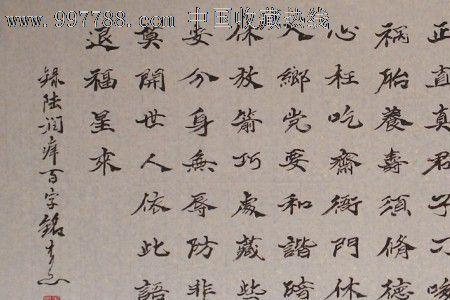 www.997788.com 中国收藏热线
正直真君子刁唆
祸胎養壽須脩德
心枉吃齋衙門休
入鄉党要和諧暗
休放箭巧處藏些
安分身無辱防非
莫開世人依此語
退福星來
錄陸潤庠百字銘